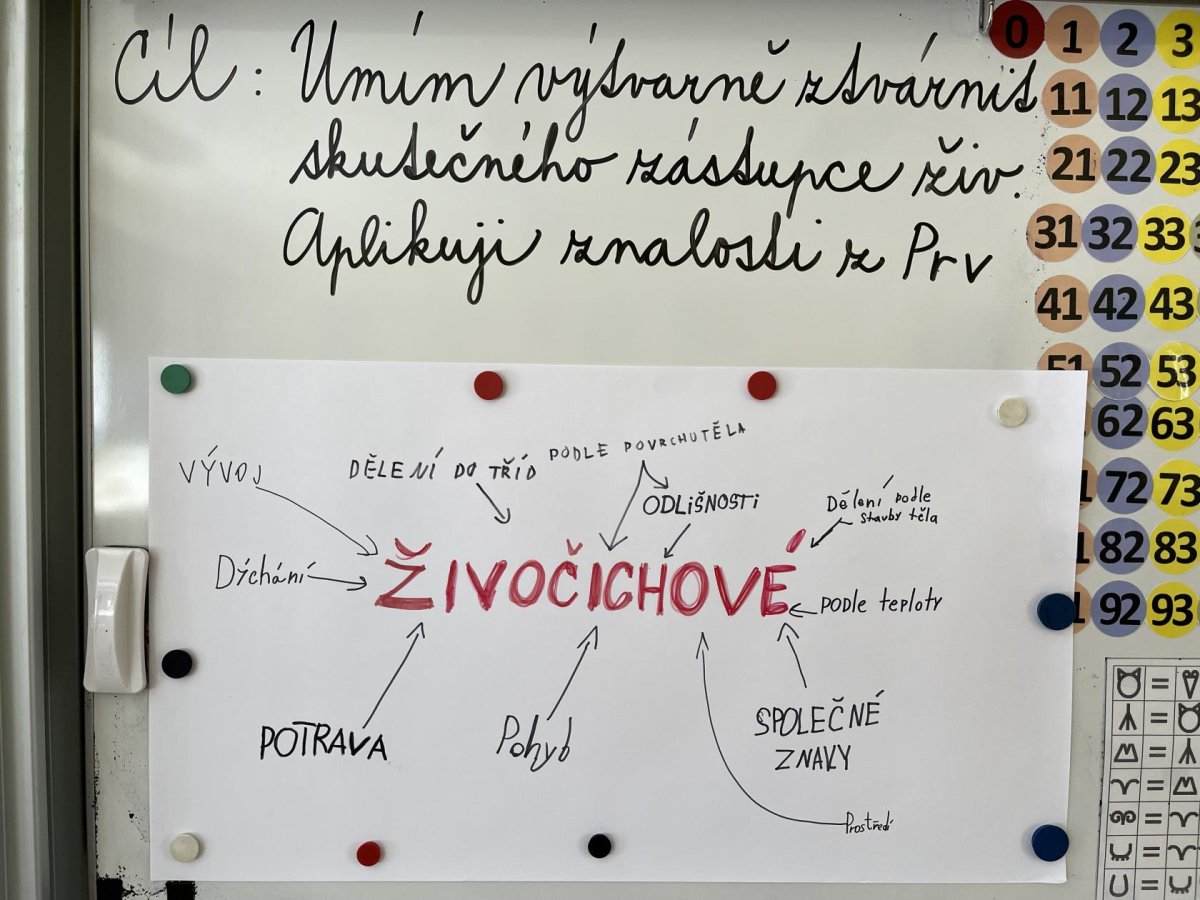 Cíl: Umím výtvarně ztvárnit
skutečného zástupce živ.
Aplikuji znalosti z Prv
0 1 2 3
11 12 13
21 22 23
31 32 33
41 42 43
51 52 53
62 63
72 73
82 83
92 93
VÝVOJ
DĚLENÍ DO TŘÍD
PODLE POVRCHU TĚLA
ODLIŠNOSTI
Dělení podle
stavby těla
Dýchání
ŽIVOČICHOVÉ
PODLE teploty
POTRAVA
Pohyb
SPOLEČNÉ
ZNAKY
Prostředí